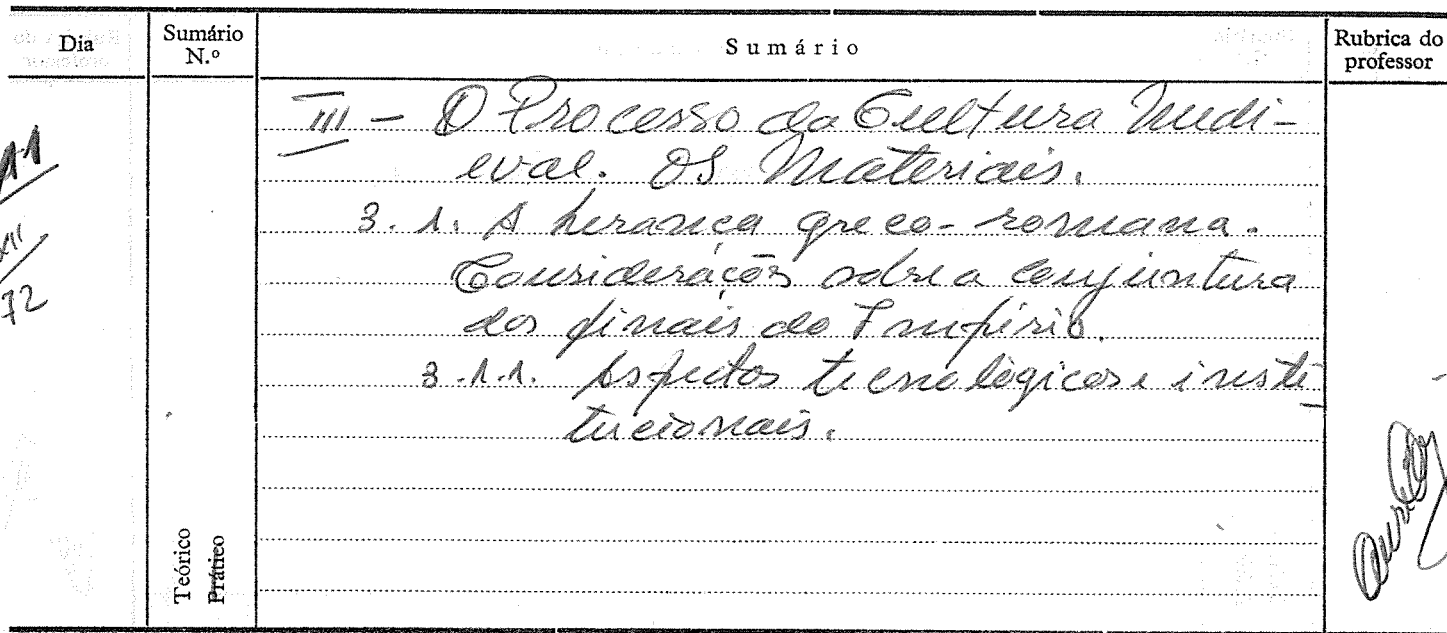 Dia
Sumário
N.º
Sumário
Rubrica do
professor
11
XII
72
III - O Processo da Cultura Medi-
eval. Os Materiais.
3.1. A herança greco-romana.
Considerações sobre a conjuntura
dos finais do Império.
3.1.1. Aspectos tecnológicos e insti-
tucionais.
Teórico
Prático